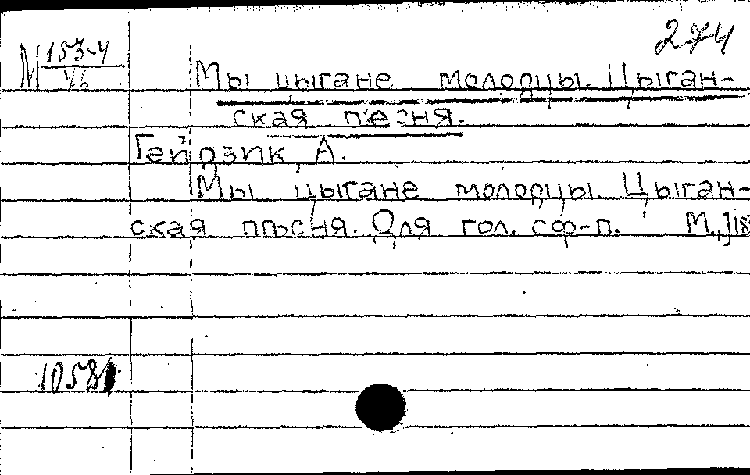 274
М 153-4
Мы цыгане молодцы. Цыган-
ская песня.
А.
Мы цыгане молодцы. Цыган-
ская пѣсня. Для гол. с ф-п. М.,
1058